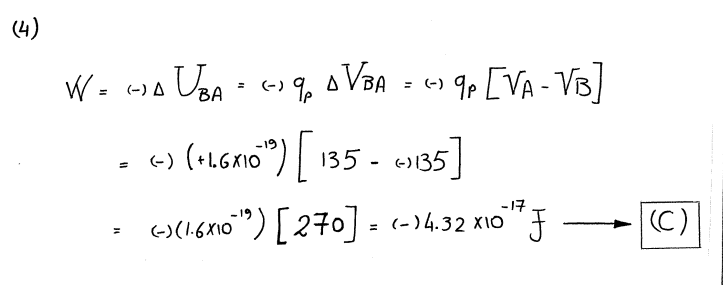 (4)
W = (-) Δ U_BA = (-) q_p Δ V_BA = (-) q_p [V_A - V_B]
= (-) (+1.6×10^-19) [135 - (-)135]
= (-)(1.6×10^-19) [270] = (-)4.32 ×10^-17 J → (C)